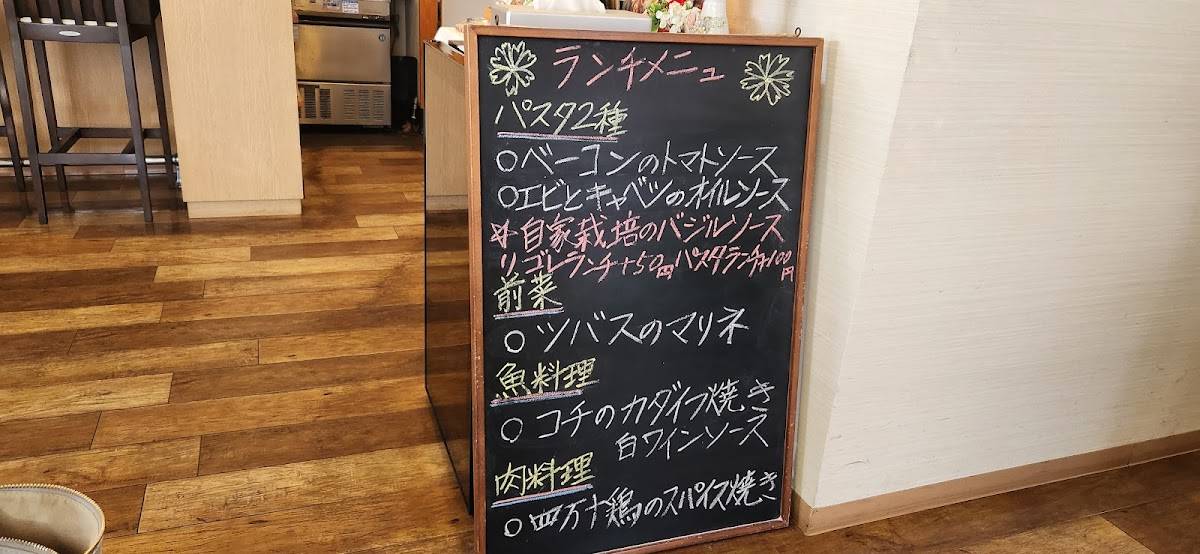 ランチメニュー
パスタ2種
○ベーコンのトマトソース
○エビとキャベツのオイルソース
☆自家栽培のバジルソース
リゴレランチ+50円 パスタランチ+100円
前菜
○ツバスのマリネ
魚料理
○コチのカダイフ焼き
白ワインソース
肉料理
○四万十鶏のスパイス焼き